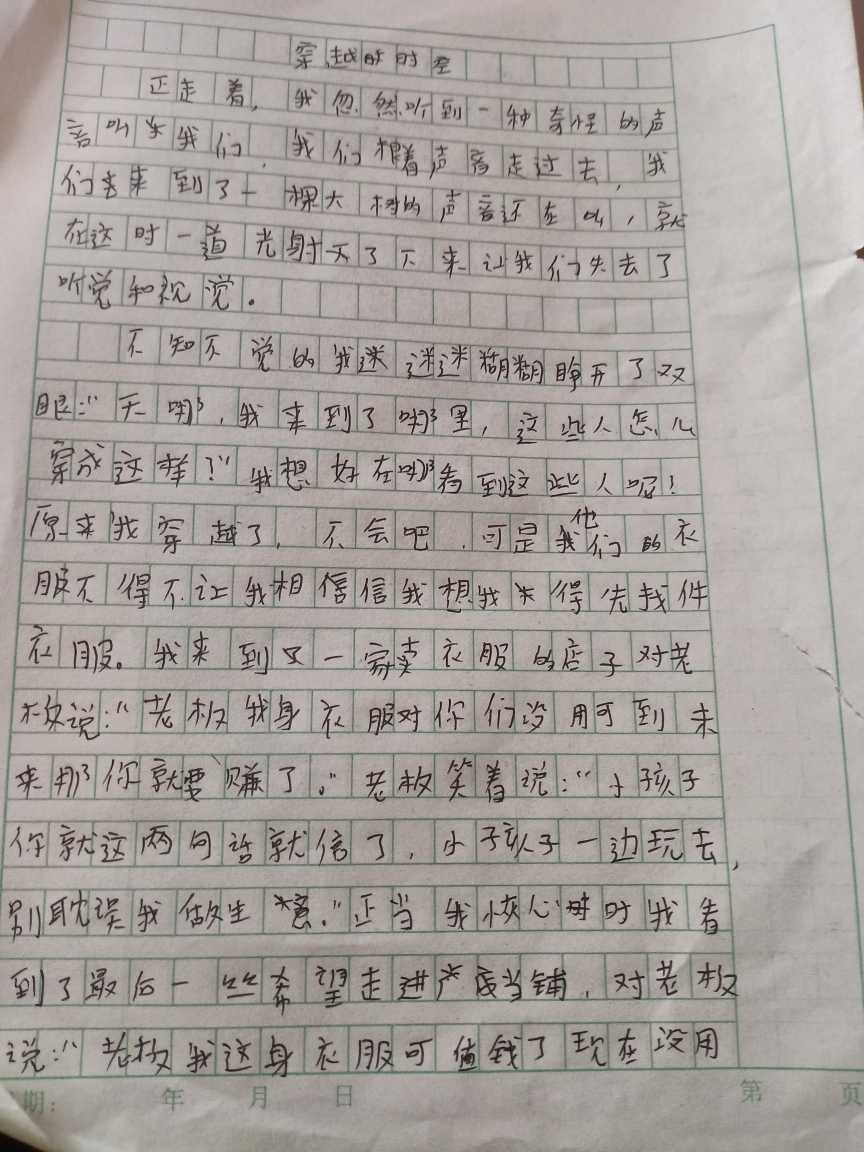 穿越时空
正走着，我忽然听到一种奇怪的声
音叫我们，我们根着声音走过去，我
们来到了一棵大树的声音还在叫，就
在这时一道光射了下来让我们失去了
听觉和视觉。
不知不觉的我迷迷糊糊睁开了双
眼：“天哪，我来到了哪里，这些人怎么
穿成这样？”我想好在哪看到这些人呢！
原来我穿越了，不会吧，可是他们的衣
服不得不让我相信我想我得先找件
衣服。我来到了一家卖衣服的店子对老
板说：“老板我身衣服对你们没用可到未
来那你就要赚了。”老板笑着说：“小孩子
你就这两句话就信了，小孩子一边玩去，
别耽误我做生意。”正当我灰心时我看
到了最后一丝希望走进当铺，对老板
说：“老板我这身衣服可值钱了现在没用
期： 年 月 日 第 页